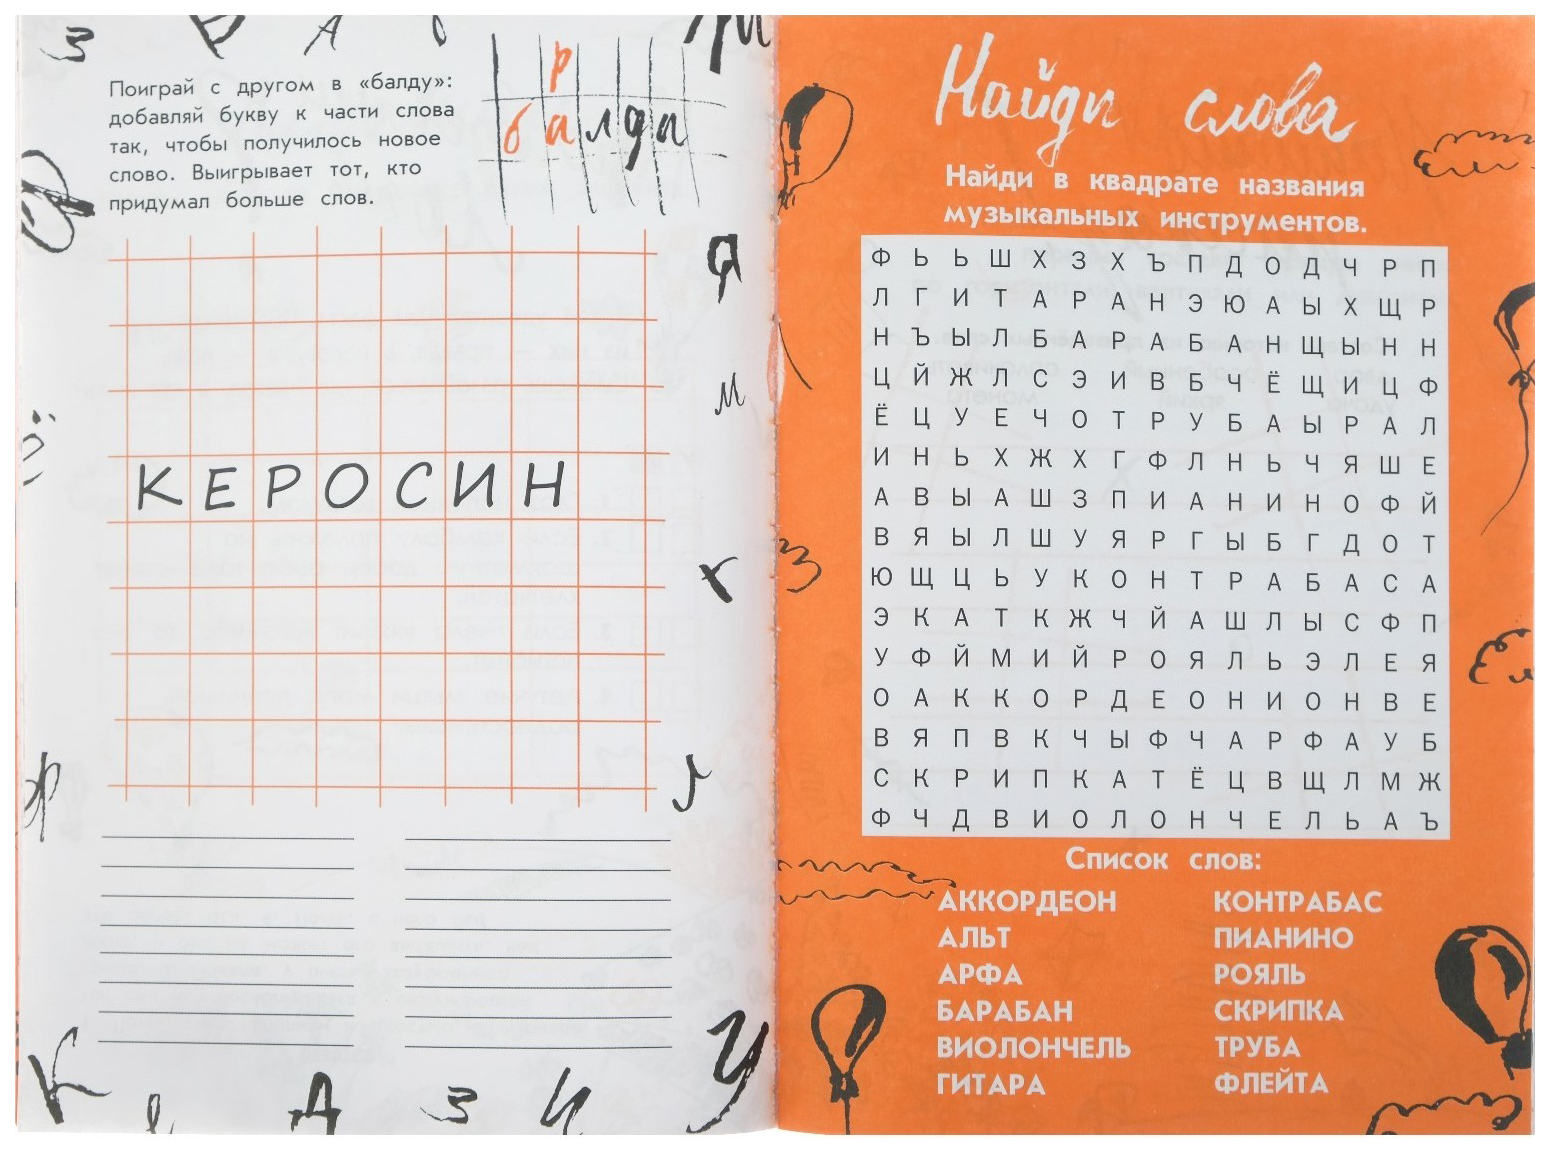 Поиграй с другом в «балду»:
добавляй букву к части слова
так, чтобы получилось новое
слово. Выигрывает тот, кто
придумал больше слов.
р
балды
КЕРОСИН
Найди слова
Найди в квадрате названия
музыкальных инструментов.
Ф Ь Ь Ш Х З Х Ъ П Д О Д Ч Р П
Л Г И Т А Р А Н Э Ю А Ы Х Щ Р
Н Ъ Ы Л Б А Р А Б А Н Щ Ы Н Н
Ц Й Ж Л С Э И В Б Ч Ё Щ И Ц Ф
Ё Ц У Е Ч О Т Р У Б А Ы Р А Л
И Н Ь Х Ж Х Г Ф Л Н Ь Ч Я Ш Е
А В Ы А Ш З П И А Н И Н О Ф Й
В Я Ы Л Ш У Я Р Г Ы Б Г Д О Т
Ю Щ Ц Ь У К О Н Т Р А Б А С А
Э К А Т К Ж Ч Й А Ш Л Ы С Ф П
У Ф Й М И Й Р О Я Л Ь Э Л Е Я
О А К К О Р Д Е О Н И О Н В Е
В Я П В К Ч Ы Ф Ч А Р Ф А У Б
С К Р И П К А Т Ё Ц В Щ Л М Ж
Ф Ч Д В И О Л О Н Ч Е Л Ь А Ъ
Список слов:
АККОРДЕОН
АЛЬТ
АРФА
БАРАБАН
ВИОЛОНЧЕЛЬ
ГИТАРА
КОНТРАБАС
ПИАНИНО
РОЯЛЬ
СКРИПКА
ТРУБА
ФЛЕЙТА